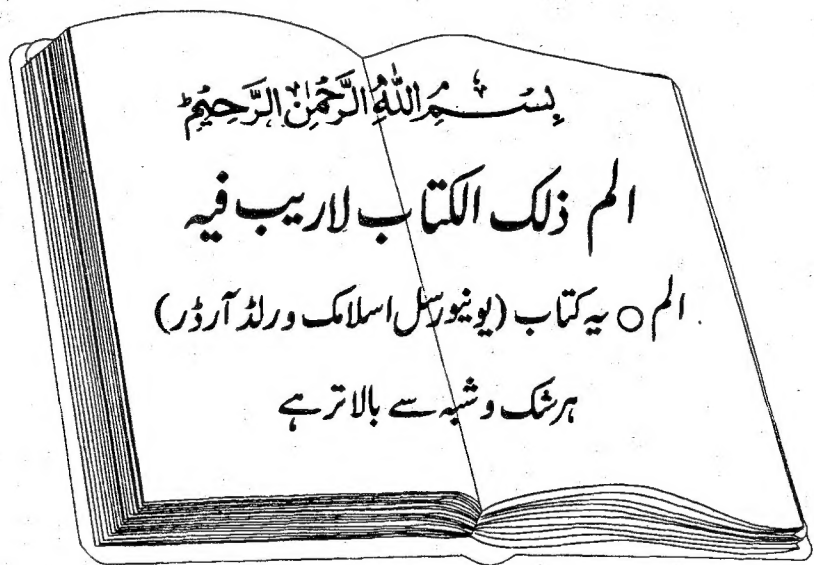 بِسْمِ اللّٰهِ الرَّحْمٰنِ الرَّحِيْمِ
الم ذلک الکتاب لاریب فیہ
الم ○ یہ کتاب (یونیورسل اسلامک ورلڈ آرڈر)
ہر شک و شبہ سے بالاتر ہے